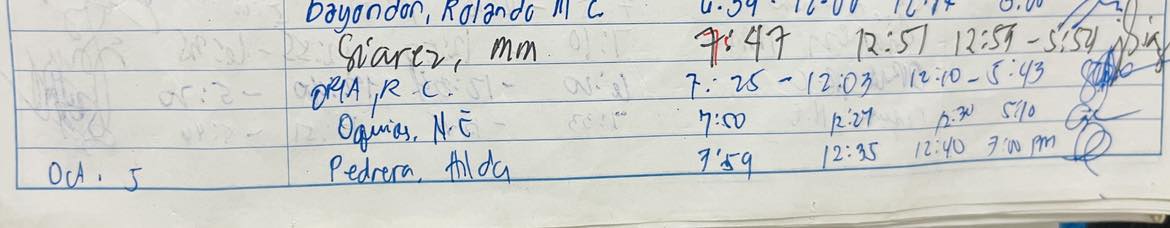 Dayondon, Rolando M C.
Siarez, mm 7:47 12:51 12:59 - 5:54
ORIA, R. C. 7:25 - 12:03 12:10 - 5:43
Oquias, N.E 7:50 12:27 12:30 5:10
Oct. 5 Pedrera, Hilda 7:59 12:35 12:40 7:00 pm